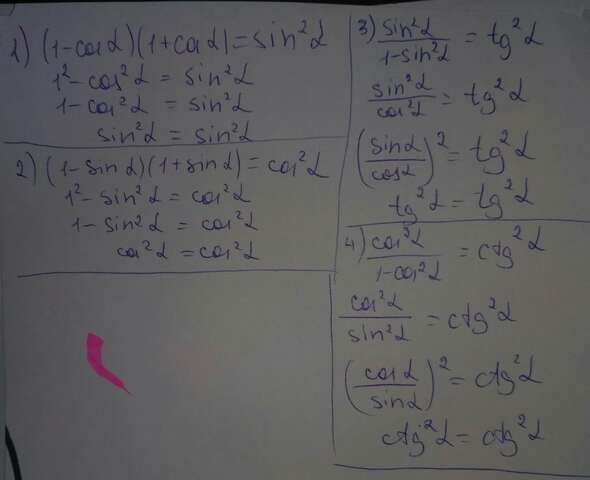 1) (1-cosα)(1+cosα)=sin²α
1²-cos²α = sin²α
1-cos²α = sin²α
sin²α = sin²α
2) (1-sinα)(1+sinα)=cos²α
1²-sin²α = cos²α
1-sin²α = cos²α
cos²α = cos²α
3) sin²α/1-sin²α = tg²α
sin²α/cos²α = tg²α
(sinα/cosα)² = tg²α
tg²α = tg²α
4) cos²α/1-cos²α = ctg²α
cos²α/sin²α = ctg²α
(cosα/sinα)² = ctg²α
ctg²α = ctg²α